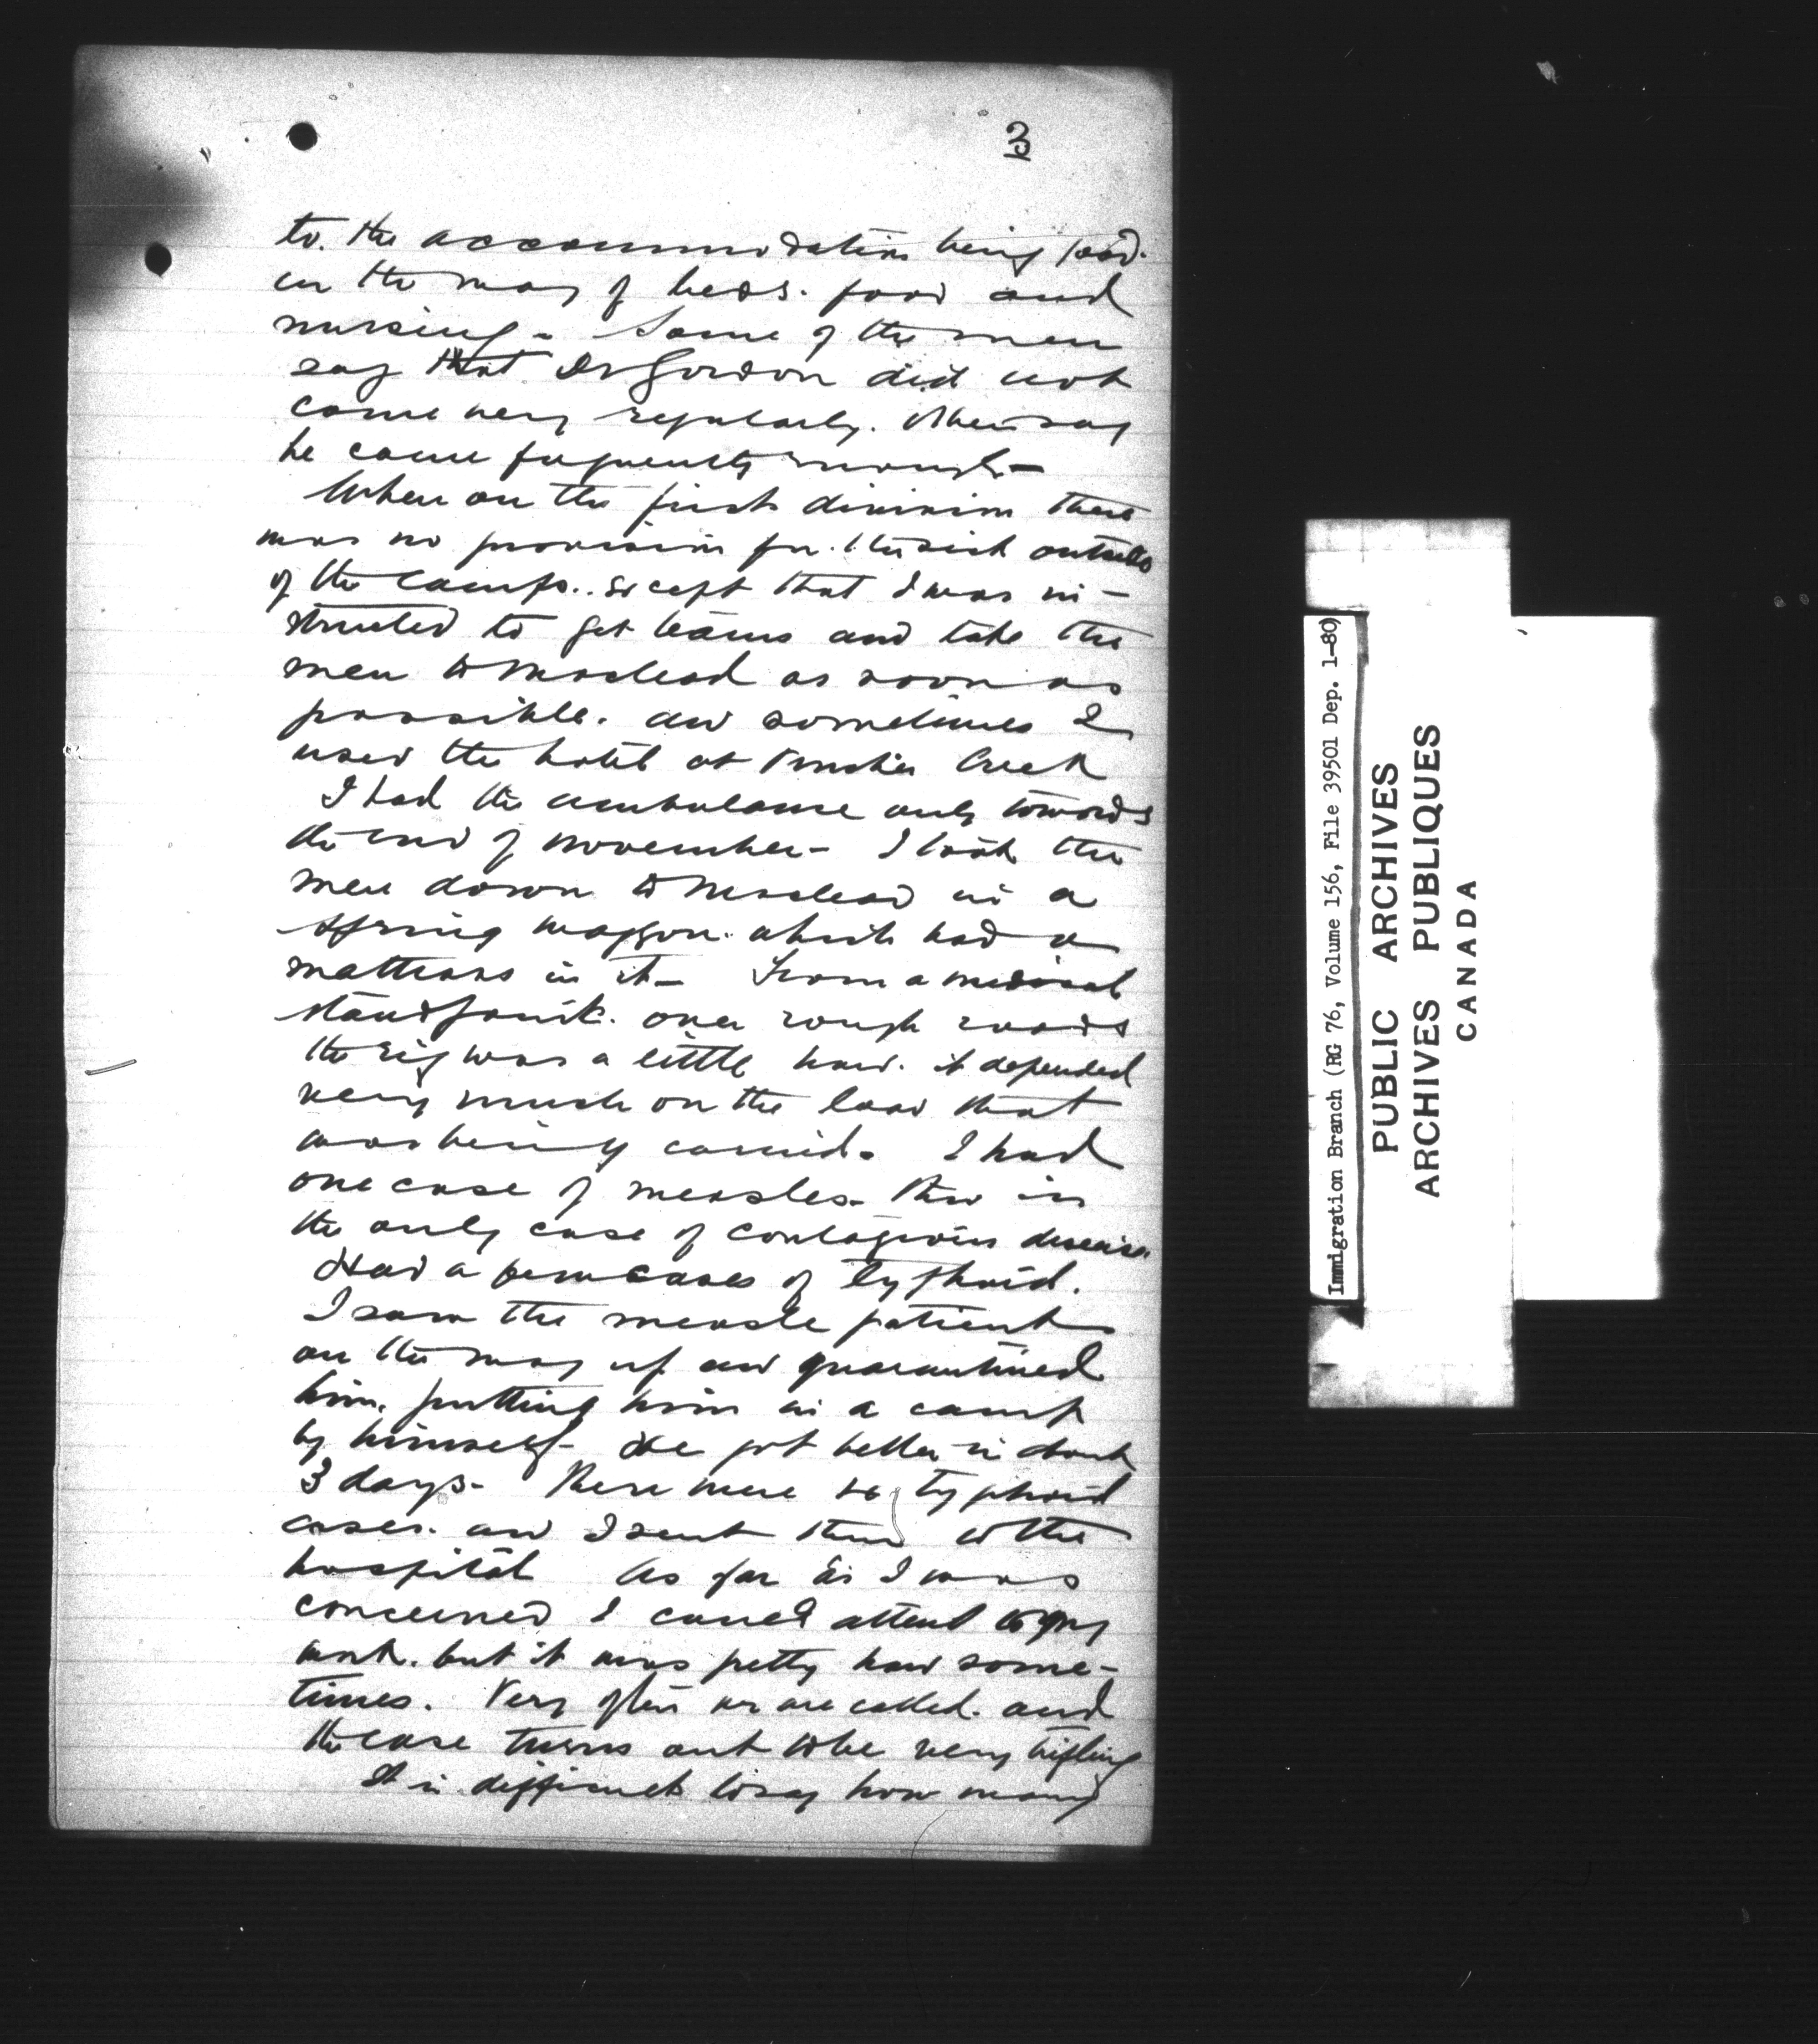 3
to the accommodation being bad.
in the way of beds. food and
nursing - Some of the men
say that Dr Gordon did not
come very regularly. Others say
he came frequently enough -
When on the first division there
was no provision for the sick outside
of the camps. except that I was in-
structed to get teams and take the
men to Macleod as soon as
possible. and sometimes I
used the hotel at Pincher Creek
I had the ambulance only towards
the end of November - I took the
men down to Macleod in a
spring waggon which had a
mattrass in it - From a medical
standpoint. over rough roads
the rig was a little hard. it depended
very much on the load that
was being carried. I had
one case of measles - this is
the only case of contagious disease
Had a few cases of typhoid.
I saw the measle patient
on the way up and quarantined
him. putting him in a camp
by himself - He got better in about
3 days - There were typhoid
cases. and I sent them to the
hospital As far as I was
concerned I could attend to my
work. but it was pretty hard some-
times. Very often we are called and
the case turns out to be very trifling
It is difficult to say how many
Immigration Branch (RG 76, Volume 156, File 39501 Dep. 1-80)
PUBLIC ARCHIVES
ARCHIVES PUBLIQUES
CANADA